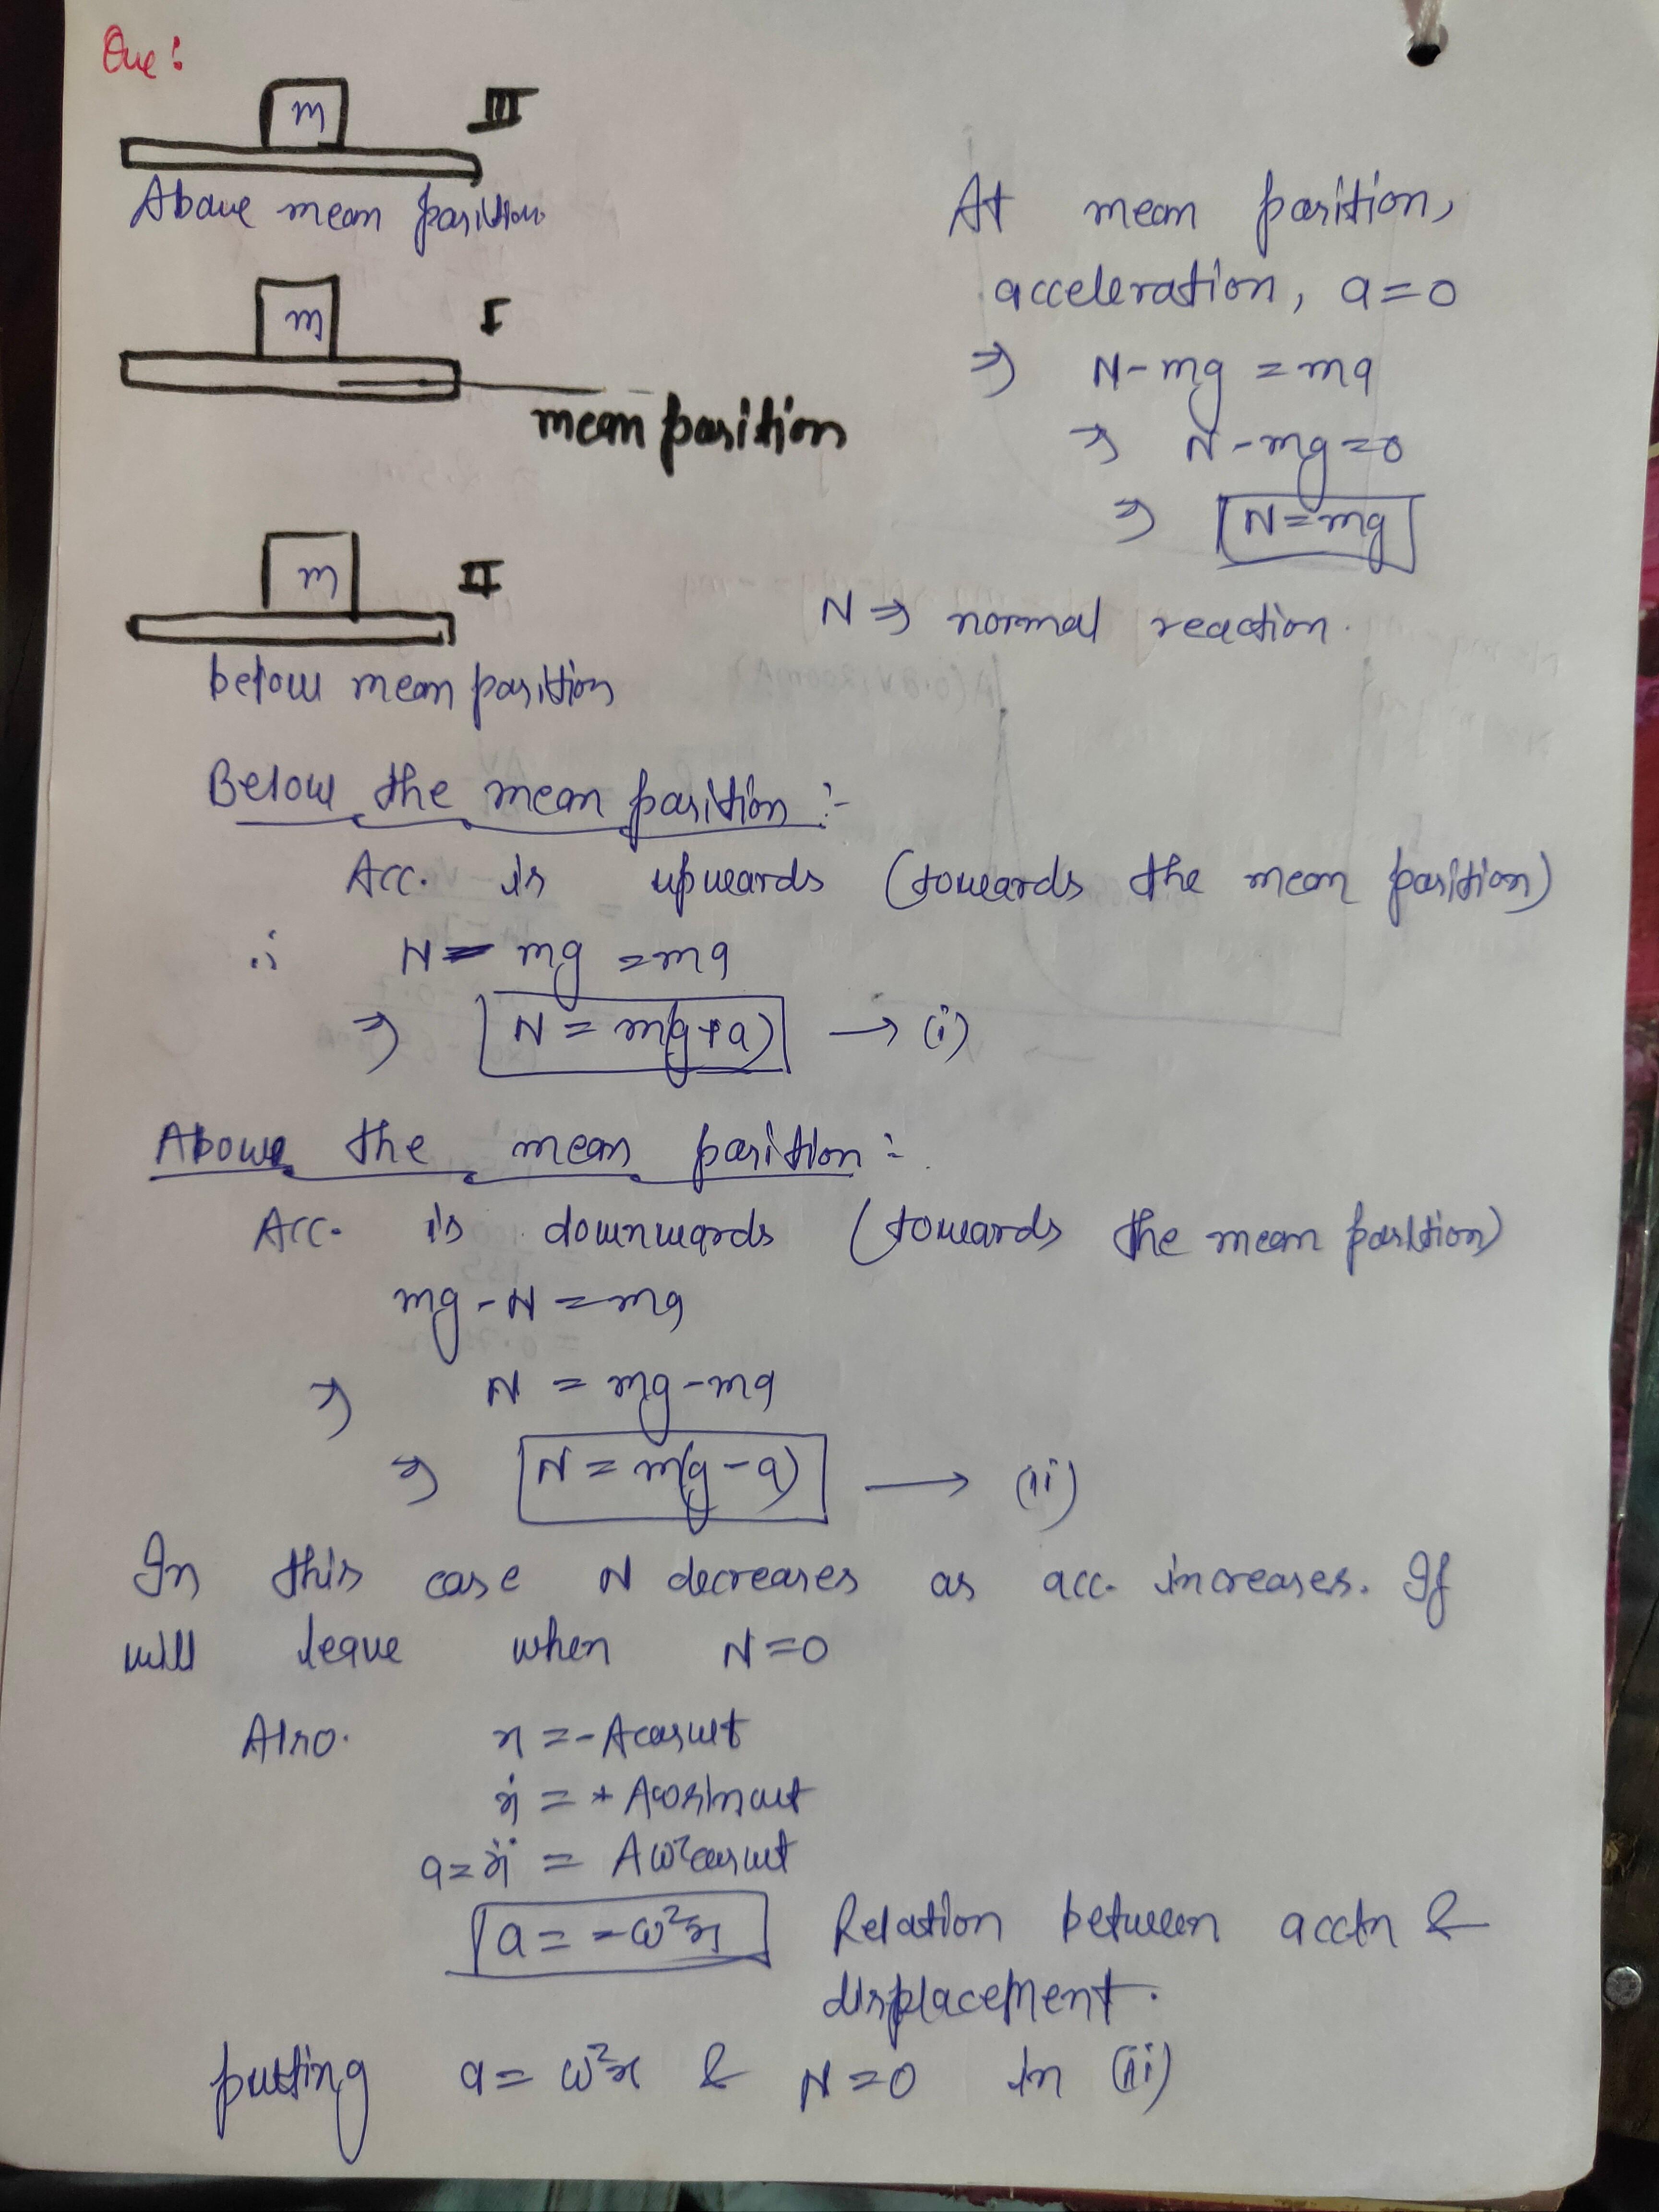 Que:
m III
Above mean position
m I
mean position
m II
below mean position
At mean position,
acceleration, a=0
⇒ N-mg = ma
⇒ N-mg=0
⇒ N=mg
N ⇒ normal reaction.
Below the mean position :-
Acc. is upwards (towards the mean position)
∴ N - mg = ma
⇒ N = m(g+a) → (i)
Above the mean position :-
Acc. is downwards (towards the mean position)
mg - N = ma
⇒ N = mg-ma
⇒ N = m(g-a) → (ii)
In this case N decreases as acc. increases. If
will leave when N=0
Also. x = -Acosωt
ẋ = + Aωsinωt
a = ẍ = Aω²cosωt
a = -ω²x Relation between acctn &
displacement.
putting a = ω²x & N=0 in (ii)